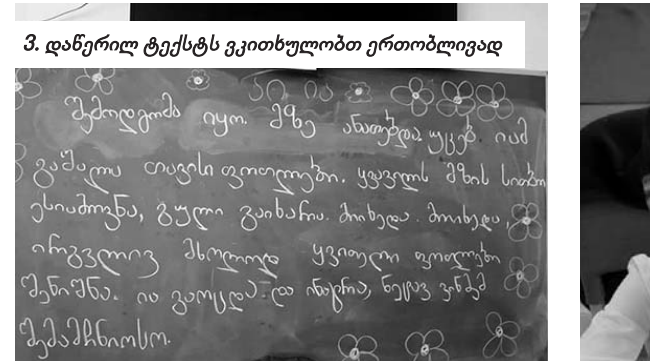 3. დაწერილ ტექსტს ვკითხულობთ ერთობლივად
აი ია
შემოდგომა იყო. მზე ანათებდა. უცებ იამ
გაშალა თავისი ფოთლები. ყვავილს მზის სითბო
ესიამოვნა, გული გაიხარა. მიიხედა. მოიხედა,
ირგვლივ მხოლოდ ყვითელი ფოთლები
შენიშნა. ია გაოცდა და ინატრა, ნეტავ ვინმემ
შემამჩნიოსო.